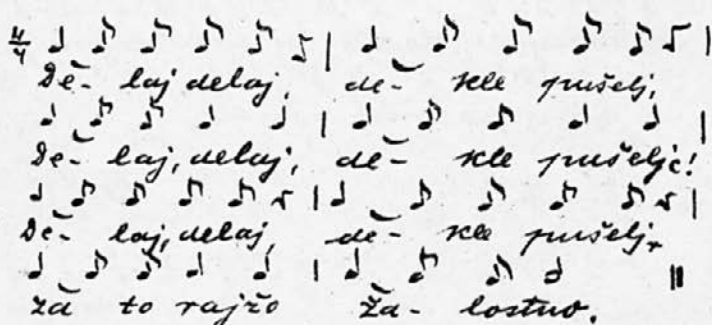 4/4
Dě- laj delaj, dě- kle pušelj,
Dě- laj, delaj, dě- kle pušeljc!
Dě- laj, delaj, dě- kle pušelj,
zǎ to rajžo žǎ- lostno.